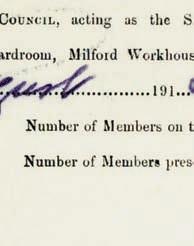 Council, acting as the S
ardroom, Milford Workhous
gust 191
Number of Members on t
Number of Members pres